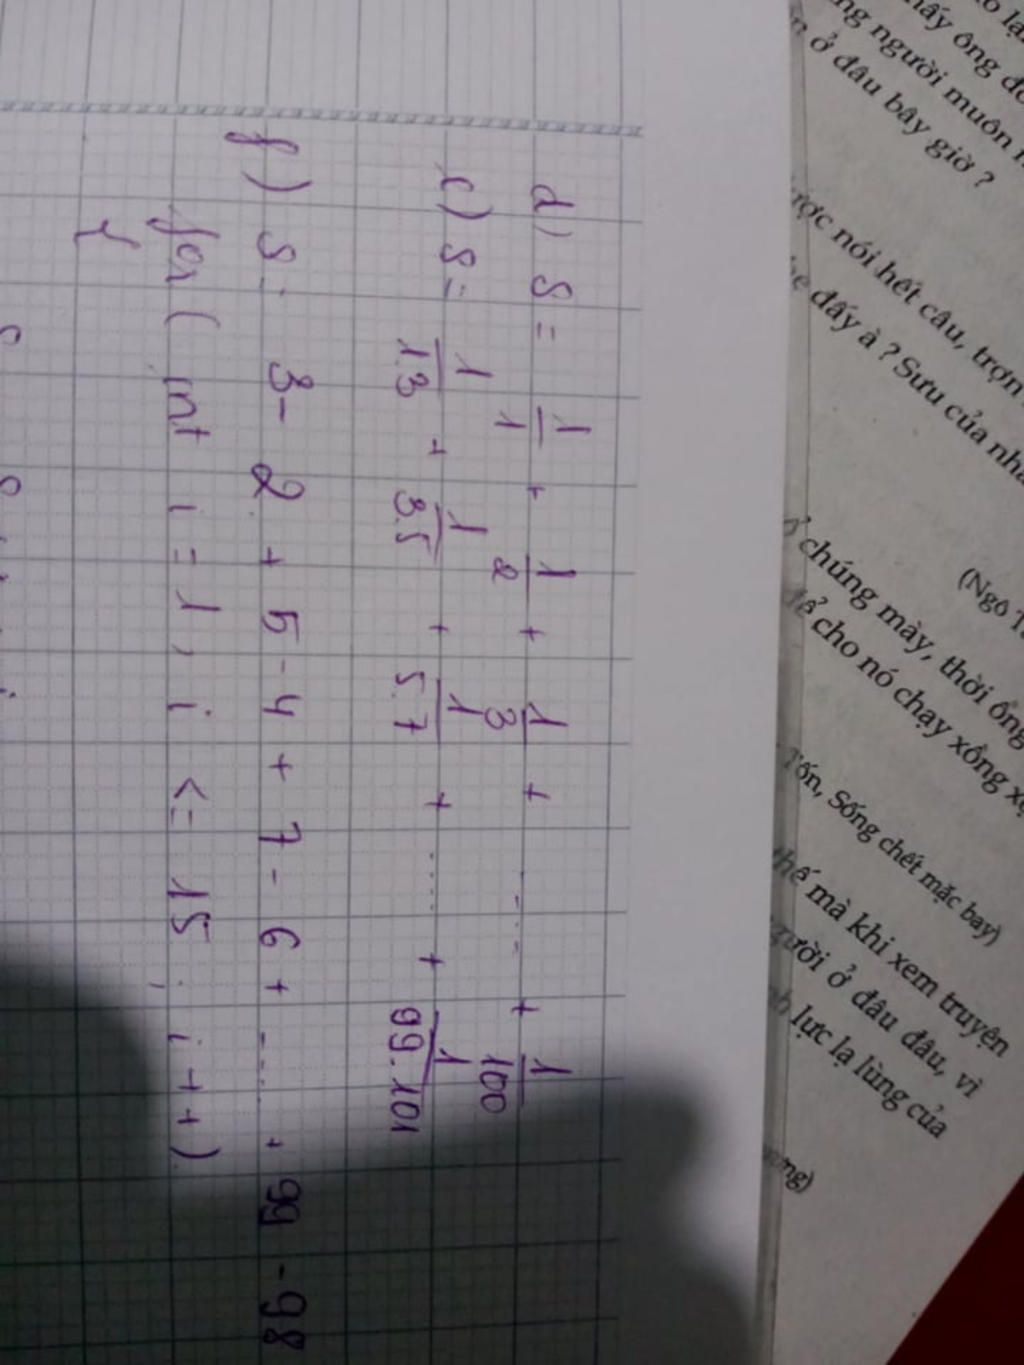 d) S = 1/1 + 1/2 + 1/3 + .... + 1/100
e) S = 1/1.3 + 1/3.5 + 1/5.7 + .... + 1/99.101
f) S = 3 - 2 + 5 - 4 + 7 - 6 + .... + 99 - 98
for ( int i = 1 ; i <= 15 ; i ++ )
{
ấy ông đồ
ng người muôn n
ở đâu bây giờ ?
ược nói hết câu, trợn
đấy à ? Sưu của nhà
(Ngô T
chúng mày, thời ông
để cho nó chạy xồng xộ
Tốn, Sống chết mặc bay)
thế mà khi xem truyện
gười ở đâu đâu, vì
lực lạ lùng của